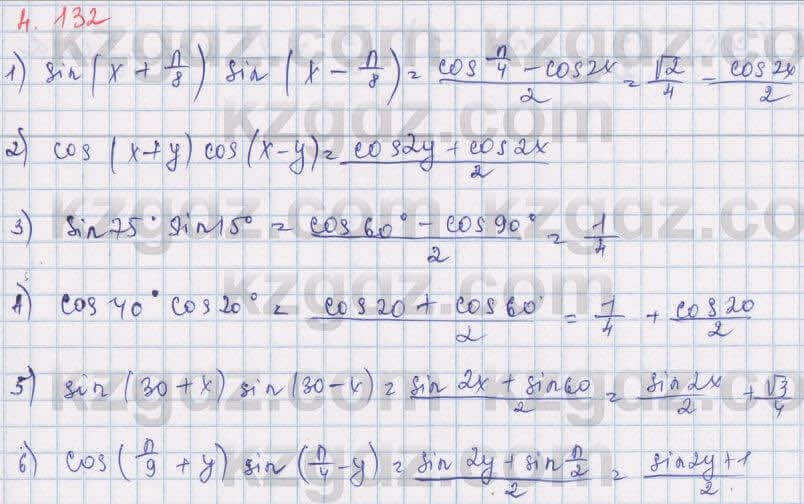 4.132
1) sin(x + π/8) sin(x − π/8) = (cos π/4 − cos2x)/2 = √2/4 − cos2x/2
2) cos(x+y) cos(x−y) = (cos2y + cos2x)/2
3) sin75° sin15° = (cos60° − cos90°)/2 = 1/4
4) cos40° cos20° = (cos20 + cos60°)/2 = 1/4 + cos20/2
5) sin(30+x) sin(30−x) = (sin2x + sin60)/2 = sin2x/2 + √3/4
6) cos(π/9 + y) sin(π/4 − y) = (sin2y + sin π/2)/2 = (sin2y+1)/2
kzgdz.com